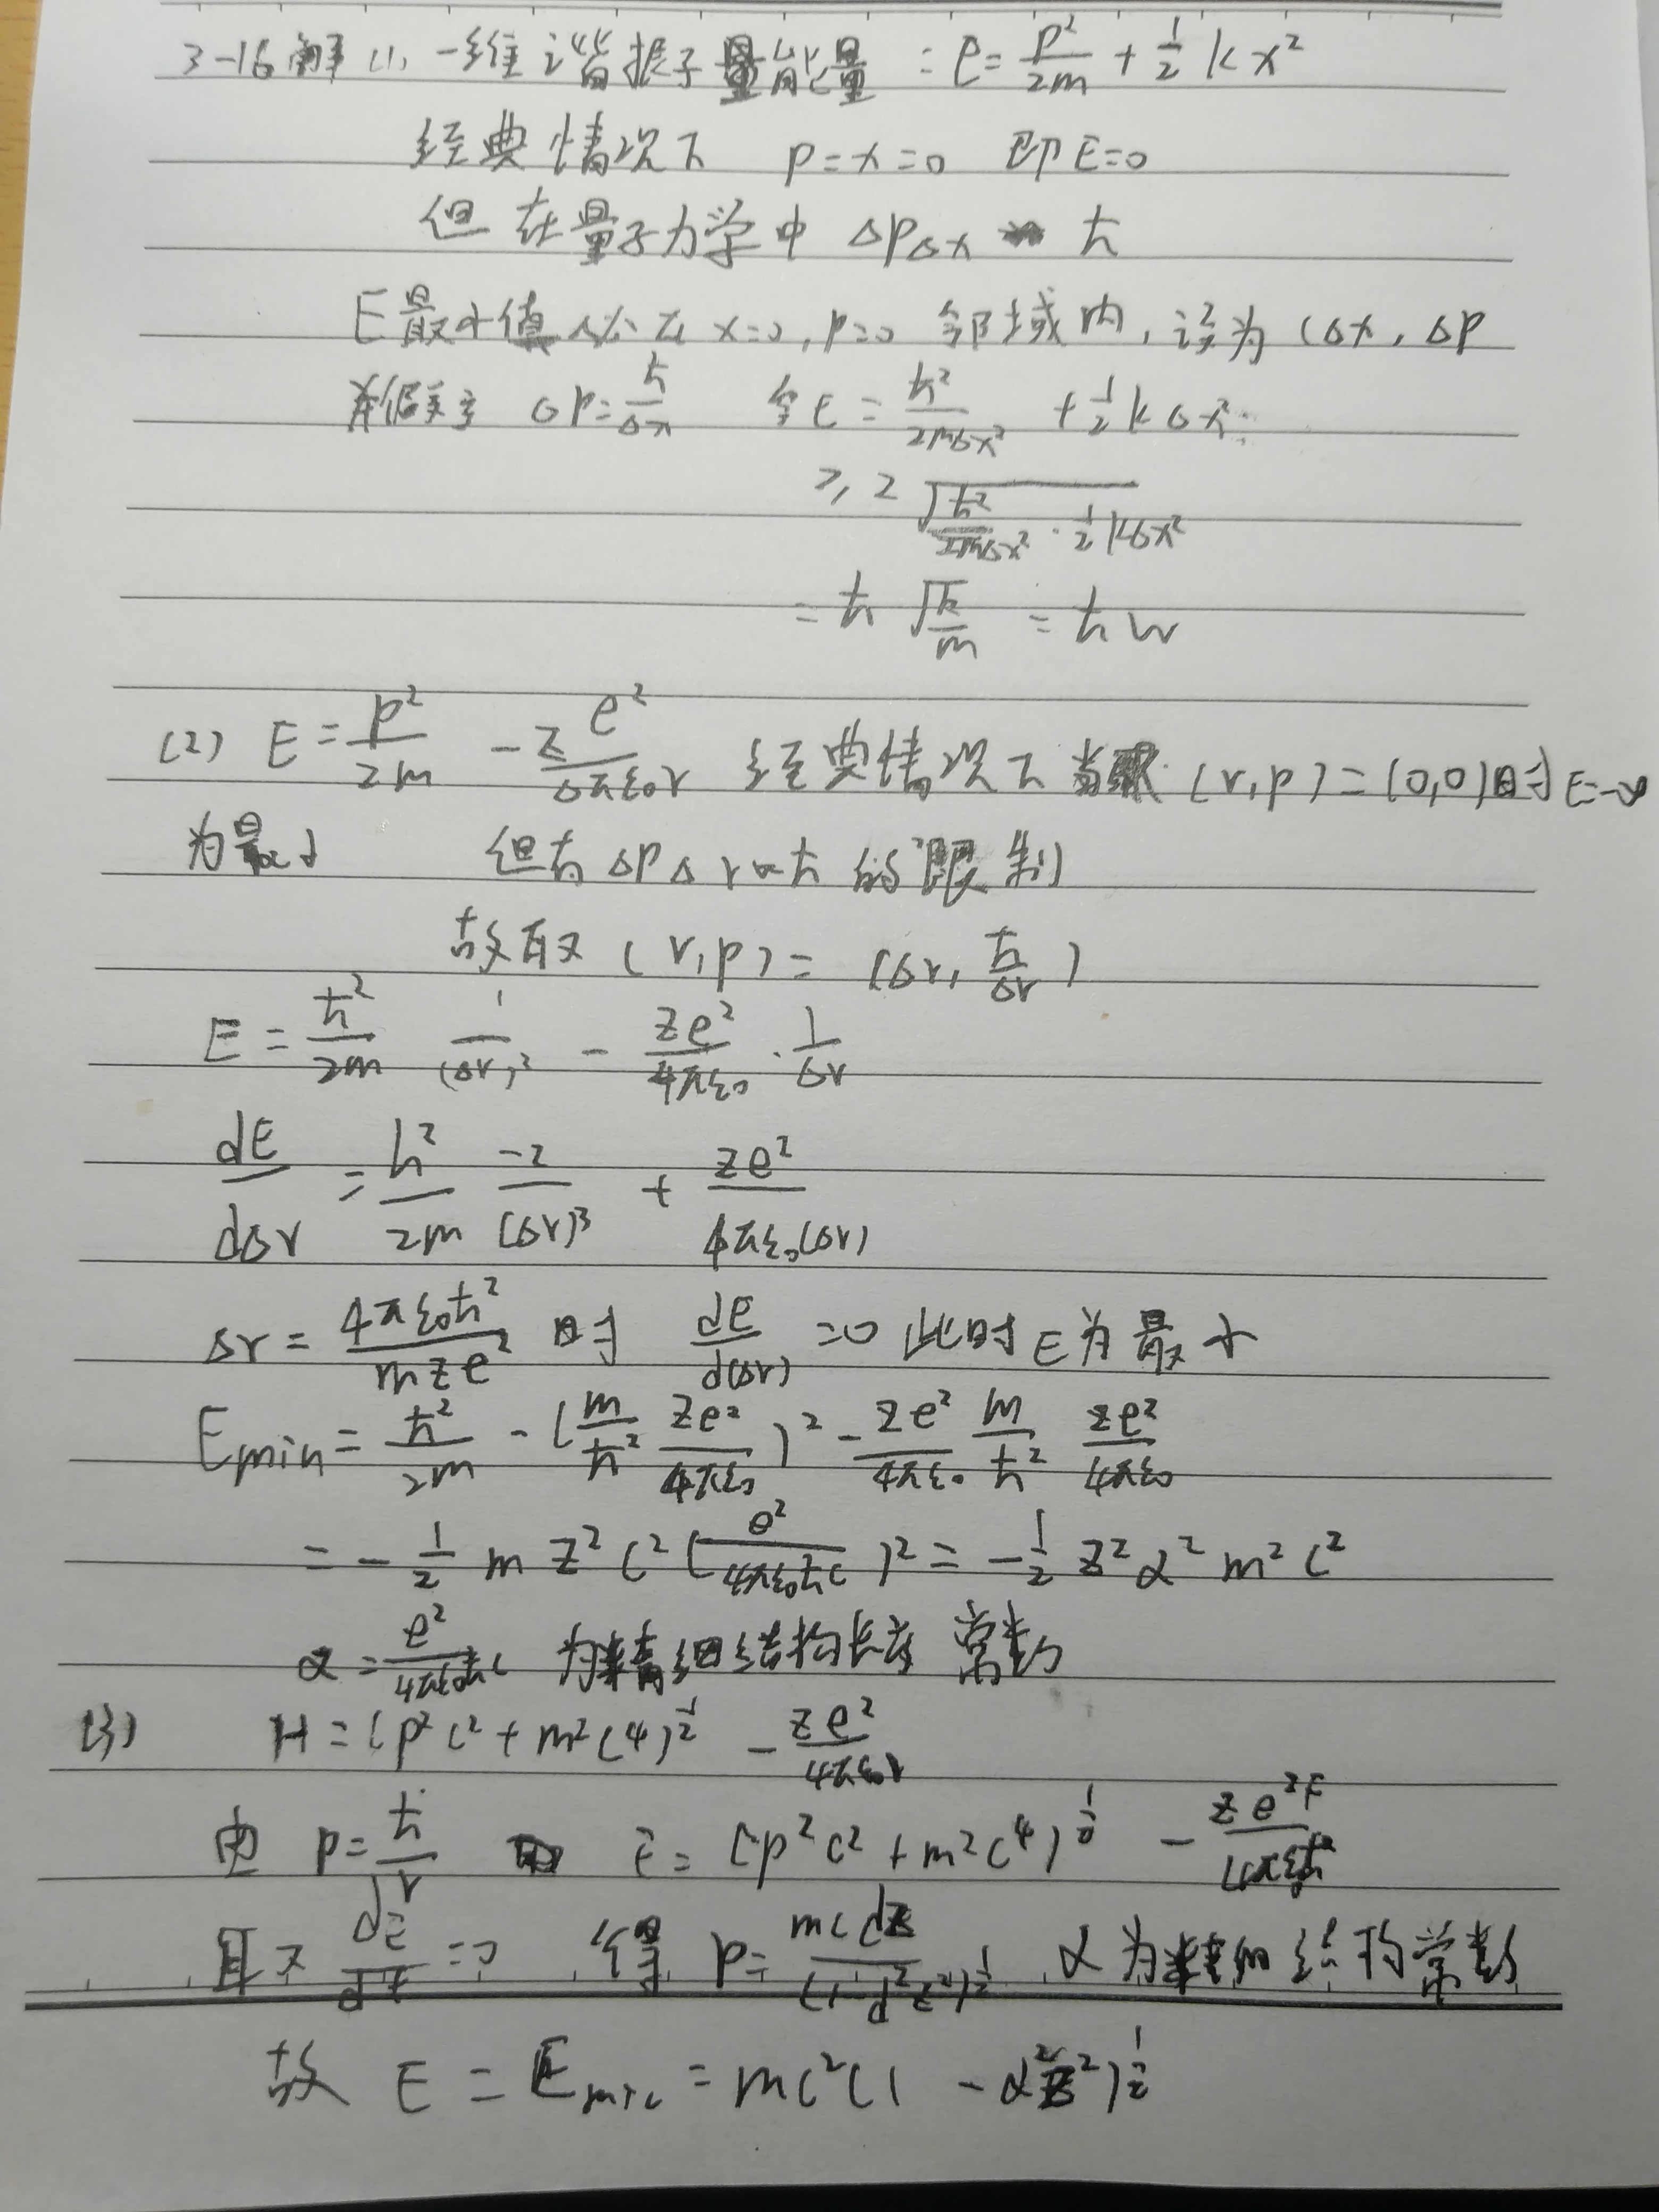 3-16 解 (1) 一维谐振子量能量：E=p²/2m + 1/2 kx²
经典情况下 p=x=0 即E=0
但在量子力学中 ΔpΔx ~ ħ
E最小值必在x=0,p=0邻域内,设为(Δx,Δp
Δp=ħ/Δx 令E=ħ²/2mΔx² + 1/2 kΔx²
≥ 2√(ħ²/2mΔx² · 1/2 kΔx²)
= ħ√(k/m) = ħw
(2) E=p²/2m - Z e²/4πε₀r 经典情况下当 (r,p)=(0,0)时E=-∞
为最小 但有ΔpΔr~ħ的限制
故取(r,p)=(Δr, ħ/Δr)
E=ħ²/2m 1/(Δr)² - Ze²/4πε₀ · 1/Δr
dE/dΔr = h²/2m -2/(Δr)³ + Ze²/4πε₀(Δr)
Δr=4πε₀ħ²/mZe² 时 dE/d(Δr) =0 此时E为最小
Emin= ħ²/2m - (m/ħ² Ze²/4πε₀)² - Ze²/4πε₀ m/ħ² Ze²/4πε₀
= - 1/2 m Z² c² (e²/4πε₀ħc)² = - 1/2 Z²α²m²c²
α=e²/4πε₀ħc 为精细结构长度 常数
(3) H=(p²c²+m²c⁴)^1/2 - Ze²/4πε₀r
由 p=ħ/r E=(p²c²+m²c⁴)^1/2 - Ze²p/4πε₀ħ
且又 dE/dp=0 得 p=mcαZ/(1-α²Z²)^1/2 α为精细结构常数
故 E = Emin = mc²(1-α²Z²)^1/2